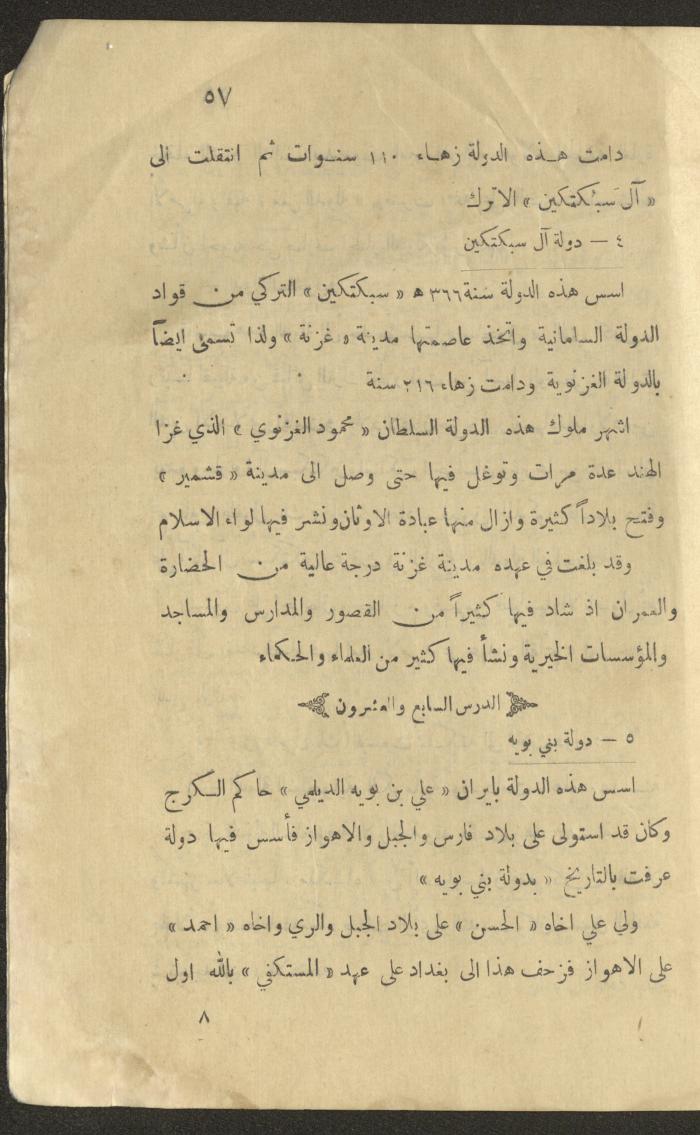 ٥٧
دامت هذه الدولة زهاء ١١٠ سنوات ثم انتقلت الى
« آل سبُكتكين » الاترك
٤ — دولة آل سبكتكين
اسس هذه الدولة سنة ٣٦٦ ﻫ « سبكتكين » التركي من قواد
الدولة السامانية واتخذ عاصمتها مدينة « غزنة » ولذا تسمى ايضاً
بالدولة الغزنوية ودامت زهاء ٢١٦ سنة
اشهر ملوك هذه الدولة السلطان « محمود الغزنوي » الذي غزا
الهند عدة مرات وتوغل فيها حتى وصل الى مدينة « قشمير »
وفتح بلاداً كثيرة وازال منها عبادة الاوثان ونشر فيها لواء الاسلام
وقد بلغت في عهده مدينة غزنة درجة عالية من الحضارة
والعمران اذ شاد فيها كثيراً من القصور والمدارس والمساجد
والمؤسسات الخيرية ونشأ فيها كثير من العلماء والحكماء
الدرس السابع والعشرون
٥ — دولة بني بويه
اسس هذه الدولة بايران « علي بن بويه الديلمي » حاكم الكرج
وكان قد استولى على بلاد فارس والجبل والاهواز فأسس فيها دولة
عرفت بالتاريخ « بدولة بني بويه »
ولي علي اخاه « الحسن » على بلاد الجبل والري واخاه « احمد »
على الاهواز فزحف هذا الى بغداد على عهد « المستكفي » بالله اول
٨